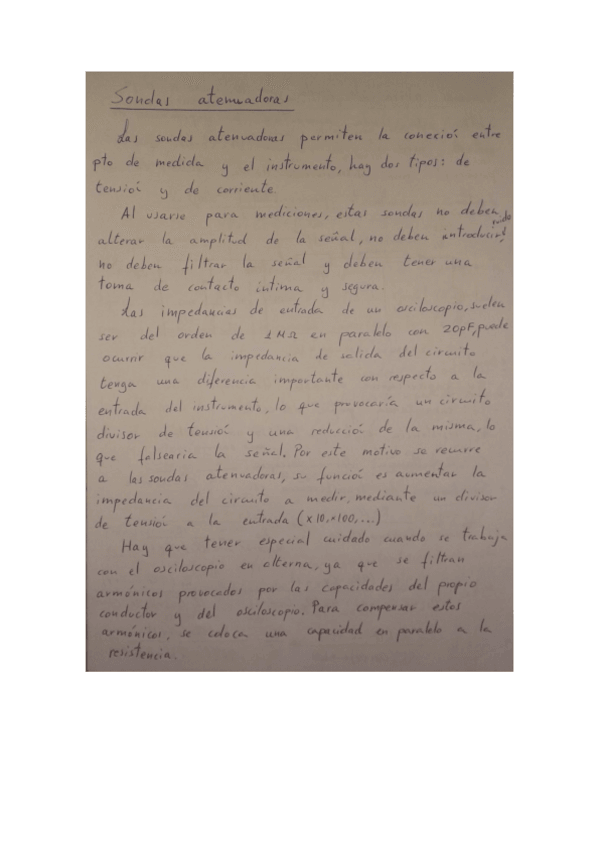 Sondas atenuadoras
Las sondas atenuadoras permiten la coneción entre
pto de medida y el instrumento, hay dos tipos: de
tensión y de corriente.
Al usarse para mediciones, estas sondas no deben
alterar la amplitud de la señal, no deben introducir ruido,
no deben filtrar la señal y deben tener una
toma de contacto íntima y segura.
Las impedancias de entrada de un osciloscopio, suelen
ser del orden de 1MΩ en paralelo con 20pF, puede
ocurrir que la impedancia de salida del circuito
tenga una diferencia importante con respecto a la
entrada del instrumento, lo que provocaría un circuito
divisor de tensión y una reducción de la misma, lo
que falsearia la señal. Por este motivo se recurre
a las sondas atenuadoras, su función es aumentar la
impedancia del circuito a medir, mediante un divisor
de tensión a la entrada (x10, x100, ...)
Hay que tener especial cuidado cuando se trabaja
con el osciloscopio en alterna, ya que se filtran
armónicos provocados por las capacidades del propio
conductor y del osciloscopio. Para compensar estos
armónicos, se coloca una capacidad en paralelo a la
resistencia.